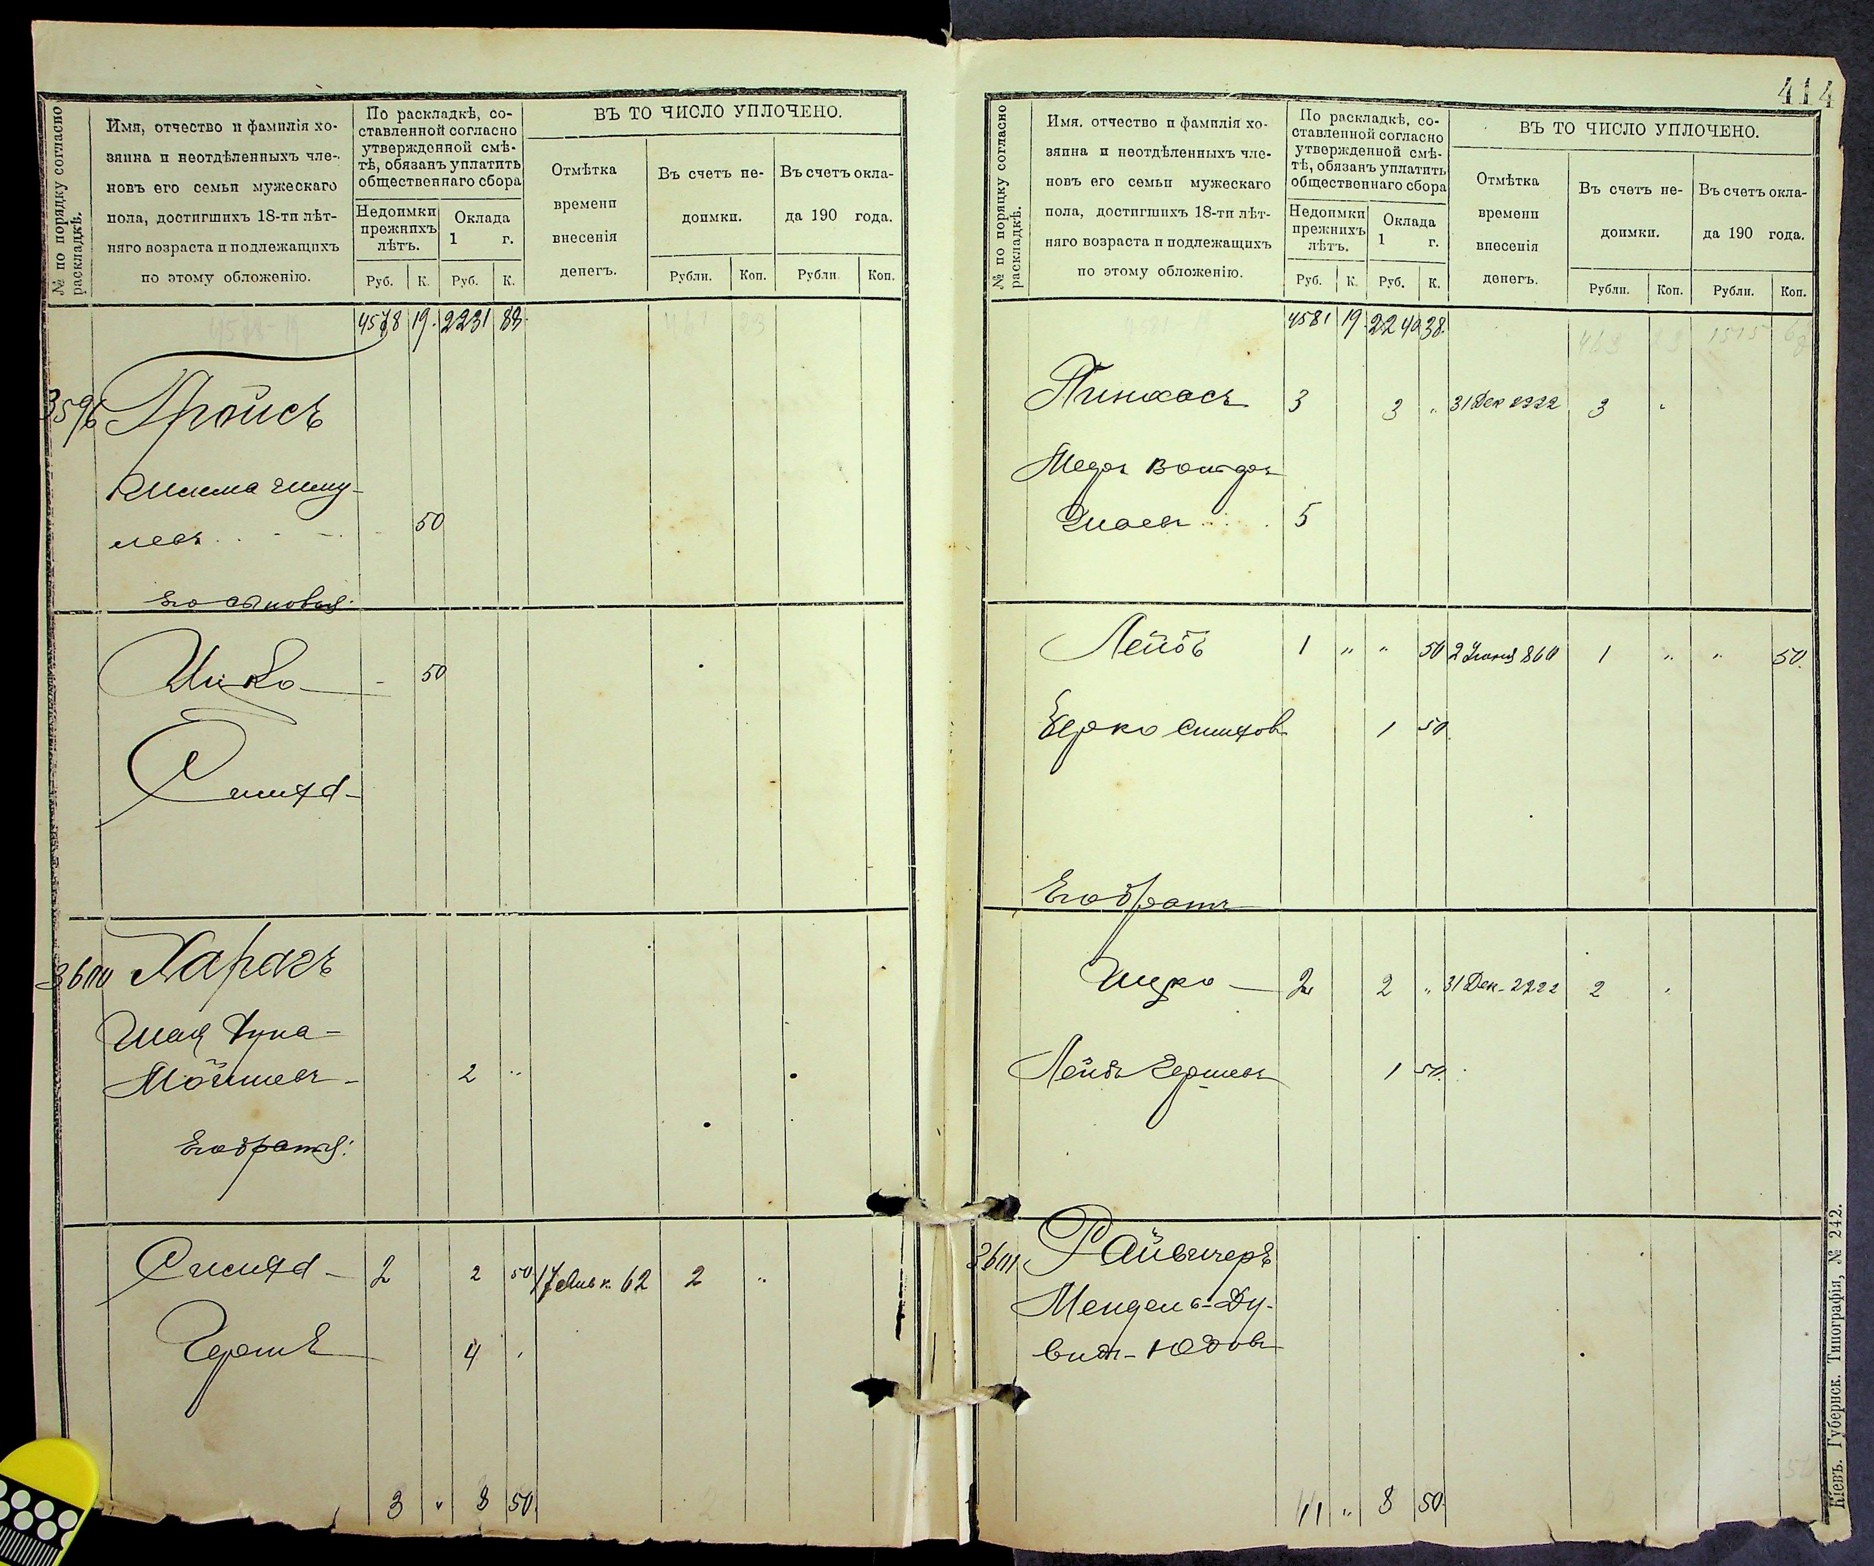 414
№ по порядку согласно
раскладкѣ.
Имя, отчество и фамилія хо-
зяина и неотдѣленныхъ чле-
новъ его семьи мужескаго
пола, достигшихъ 18-ти лѣт-
няго возраста и подлежащихъ
по этому обложенію.
По раскладкѣ, со-
ставленной согласно
утвержденной смѣ-
тѣ, обязанъ уплатить
общественнаго сбора
Недоимки
прежнихъ
лѣтъ.
Оклада
1 г.
Руб. К. Руб. К.
ВЪ ТО ЧИСЛО УПЛОЧЕНО.
Отмѣтка
времени
внесенія
денегъ.
Въ счетъ не-
доимки.
Въ счетъ окла-
да 190 года.
Рубли. Коп. Рубли. Коп.
4578 19. 2231 88.
3596 Тройсъ
50
Его сыновья:
Ицко 50
Симха
3600 Харагъ
Шая
Мойшевъ 2 "
Его братья:
Симха 2 2 50 62 2 "
Гершъ 4
3 " 8 50.
№ по порядку согласно
раскладкѣ.
Имя, отчество и фамилія хо-
зяина и неотдѣленныхъ чле-
новъ его семьи мужескаго
пола, достигшихъ 18-ти лѣт-
няго возраста и подлежащихъ
по этому обложенію.
По раскладкѣ, со-
ставленной согласно
утвержденной смѣ-
тѣ, обязанъ уплатить
общественнаго сбора
Недоимки
прежнихъ
лѣтъ.
Оклада
1 г.
Руб. К. Руб. К.
ВЪ ТО ЧИСЛО УПЛОЧЕНО.
Отмѣтка
времени
внесенія
денегъ.
Въ счетъ не-
доимки.
Въ счетъ окла-
да 190 года.
Рубли. Коп. Рубли. Коп.
4581 19. 2240 38.
Пинхасъ 3 3 " 31 Дек 2222 3 "
5
Лейбъ 1 " " 50 2 Іюня 860 1 " " 50.
Берко Симхов 1 50
Его братъ
Ицко 2 2 " 31 Дек. 2222 2 "
Лейбъ Гершевъ 1 50.
3601 Райвичеръ
Мендель-Ду-
видъ Юдовъ
11 " 8 50.
Кіевъ. Губернск. Типографія, № 242.